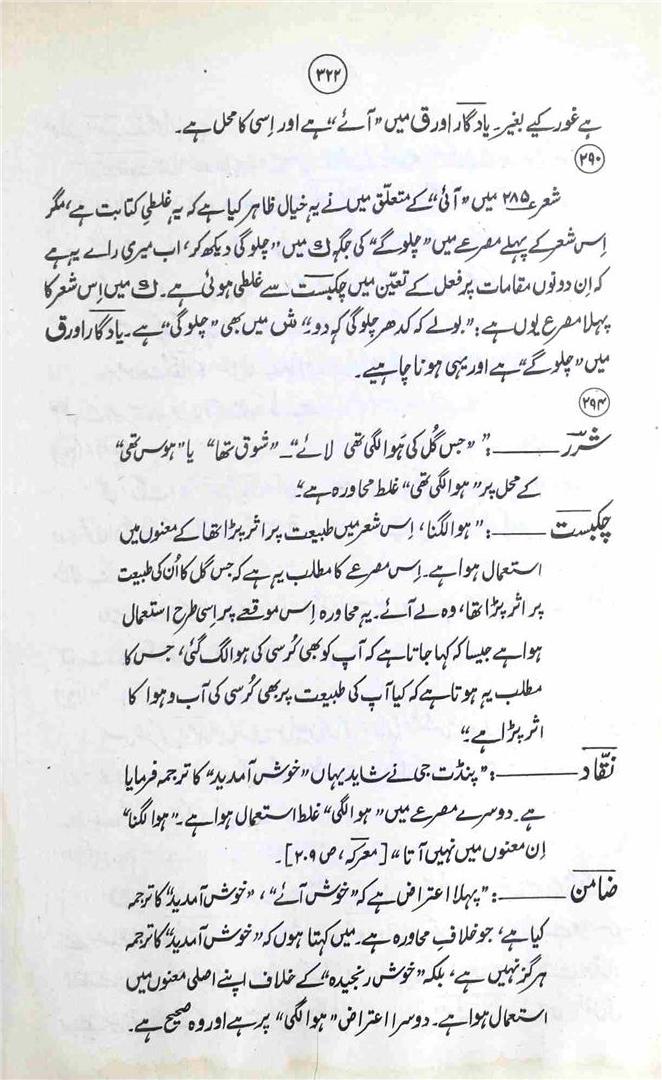 ۳۲۲
ہے غور کیے بغیر۔ یادگار اورق میں ”آئے“ ہے اور اِسی کا محل ہے۔
۲۹۰
شعر ۲۸۵ میں ”آئی“ کے متعلّق میں نے یہ خیال ظاہر کیا ہے کہ یہ غلطیِ کتابت ہے، مگر
اِس شعر کے پہلے مصرعے میں ”چلوگے“ کی جگہ ک میں ”چلوگی“ دیکھ کر، اب میری راے یہ ہے
کہ اِن دونوں مقامات پر فعل کے تعیّن میں چکبست سے غلطی ہوئی ہے۔ ک میں اِس شعر کا
پہلا مصرع یوں ہے: ”بولے کہ کدھر چلوگی کہ دو“۔ مثل میں بھی ”چلوگی“ ہے۔ یادگار اورق
میں ”چلوگے“ ہے اور یہی ہونا چاہیے۔
۲۹۴
شرر ——: ”جس گُل کی ہَوا لگی تھی لائے“۔ ”شوق تھا“ یا ”ہوس تھی“
کے محل پر ”ہوا لگی تھی“ غلط محاورہ ہے“۔
چکبست ——: ”ہوا لگنا، اِس شعر میں طبیعت پر اثر پڑا تھا کے معنوں میں
استعمال ہوا ہے۔ اِس مصرعے کا مطلب یہ ہے کہ جس گل کا اُن کی طبیعت
پر اثر پڑا تھا، وہ لے آئے۔ یہ محاورہ اِس موقعے پر اِسی طرح استعمال
ہوا ہے جیسا کہ کہا جاتا ہے کہ آپ کو بھی کُرسی کی ہوا لگ گئی، جس کا
مطلب یہ ہوتا ہے کہ کیا آپ کی طبیعت پر بھی کُرسی کی آب و ہوا کا
اثر پڑا ہے“۔
نقّاد ——: ”پنڈت جی نے شاید یہاں ”خوش آمدید“ کا ترجمہ فرمایا
ہے۔ دوسرے مصرعے میں ”ہوا لگی“ غلط استعمال ہوا ہے۔ ”ہوا لگنا“
اِن معنوں میں نہیں آتا“ [معرکہ، ص ۲۰۹]۔
ضامن ——: ”پہلا اعتراض ہے کہ ”خوش آئے“، ”خوش آمدید“ کا ترجمہ
کیا ہے، جو خلافِ محاورہ ہے۔ میں کہتا ہوں کہ ”خوش آمدید“ کا ترجمہ
ہرگز نہیں ہے، بلکہ ”خوش رنجیدہ“ کے خلاف اپنے اصلی معنوں میں
استعمال ہوا ہے۔ دوسرا اعتراض ”ہوا لگی“ پر ہے اور وہ صحیح ہے۔